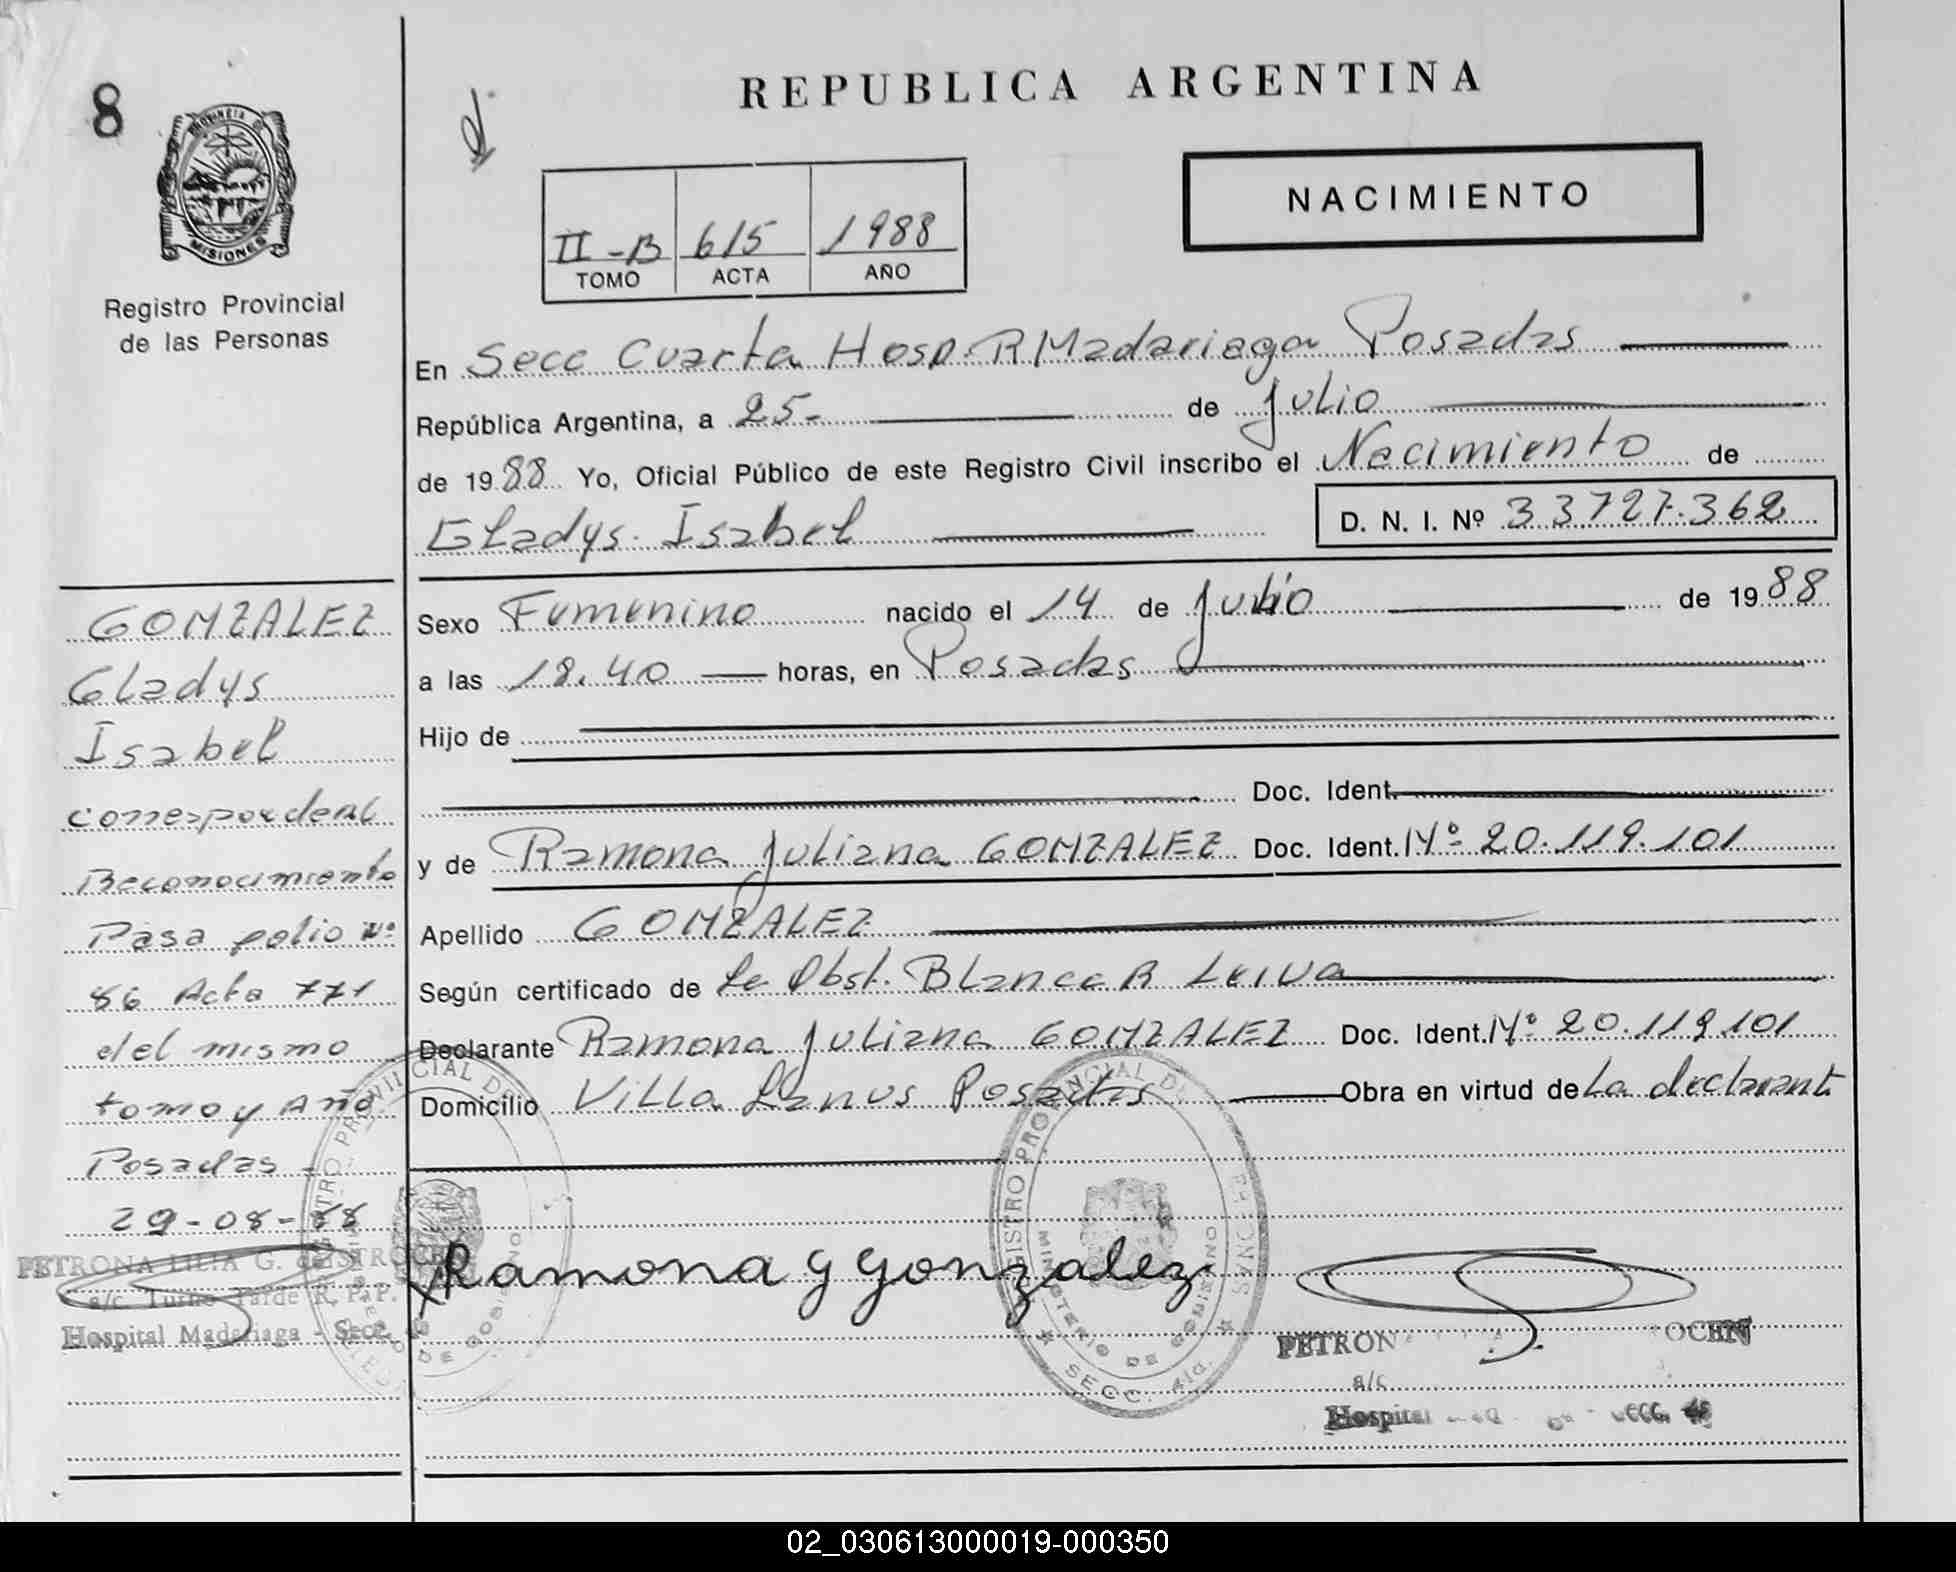 8
REPUBLICA ARGENTINA
PROVINCIA D
MISIONES
Registro Provincial
de las Personas
II-B 615 1988
TOMO ACTA AÑO
NACIMIENTO
En Secc Cuarta Hosp. R Madariaga Posadas
República Argentina, a 25- de Julio
de 1988 Yo, Oficial Público de este Registro Civil inscribo el Nacimiento de
Gladys Isabel D. N. I. Nº 33727.362
Sexo Femenino nacido el 14 de Julio de 1988
a las 18.40 horas, en Posadas
Hijo de
Doc. Ident.
y de Ramona Juliana GONZALEZ Doc. Ident. Nº 20.119.101
Apellido GONZALEZ
Según certificado de La Obst. Blanca R Leiva
Declarante Ramona Juliana GONZALEZ Doc. Ident. Nº 20.119101
Domicilio Villa Lanus Posadas Obra en virtud de La declarante
GONZALEZ
Gladys
Isabel
Reconocimiento
Pasa folio Nº
86 Acta 771
del mismo
tomo y Año
Posadas -
29-08-88
PETRONA LILIA G. de
a/c. Turno Tarde R. P. P.
Hospital Madariaga - Secc.
Ramona J Gonzalez
REGISTRO PROVINCIAL DE
MINISTERIO DE GOBIERNO
SECC. 4ta.
PETRON
a/c
Hospital
02_030613000019-000350